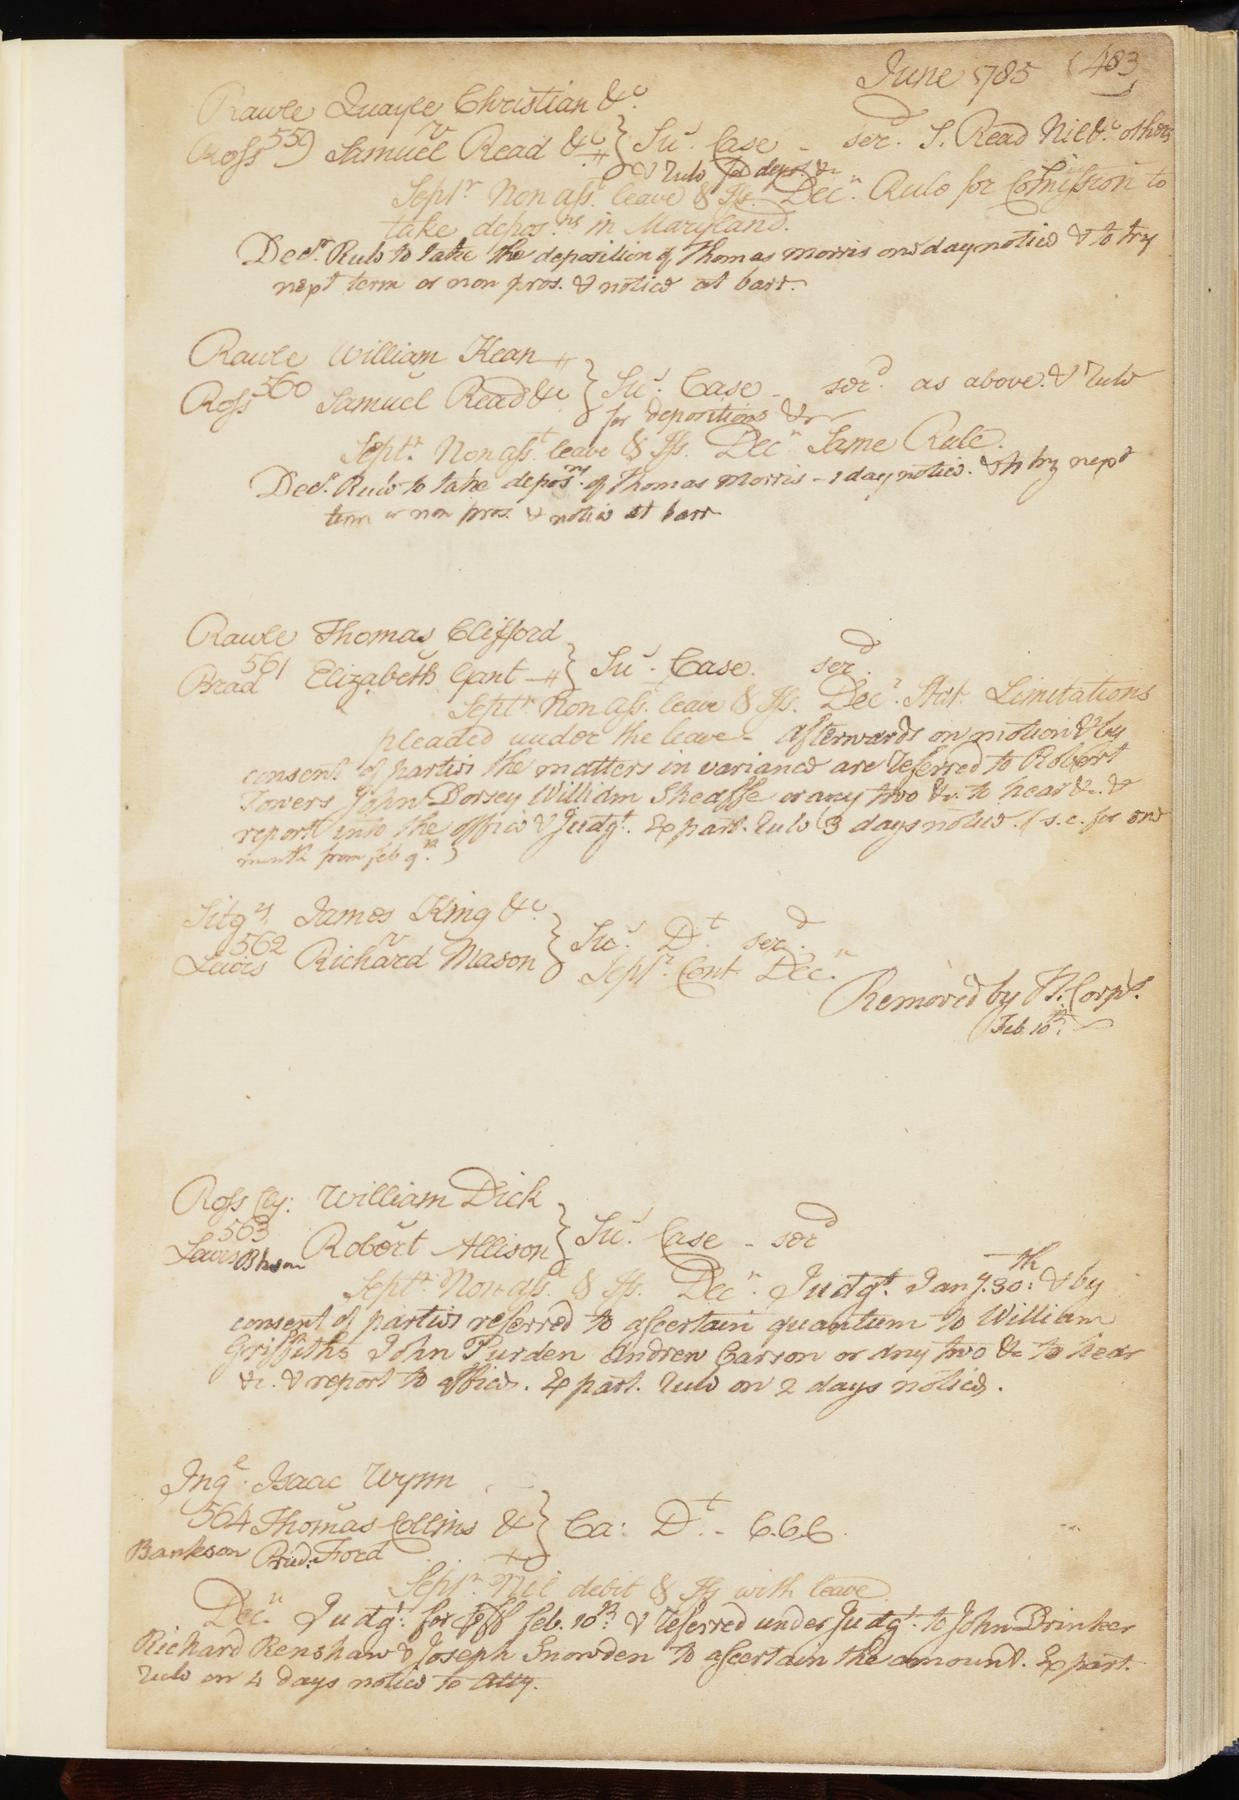 June 1785 (483
Rawle Quayle Christian &c
Ross 559 v Samuel Read &c } Sus. Case - serd. S. Read Nil &c others
& rule for depos. &c
Septr. Non ass. leave & Iss. Decr. Rule for Commission to
take deposns in Maryland.
Decr. Rule to take the deposition of Thomas Morris one day notice & to try
next term or non pros. & notice at barr.
Rawle William Kean
Ross 560 v Samuel Read &c } Sus. Case - serd. as above. & rule
for depositions &c
Septr. Non ass. leave & Iss. Decr. Same Rule.
Decr. Rule to take deposns. of Thomas Morris - 1 day notice. & to try next
term or non pros. & notice at barr
Rawle Thomas Clifford
Brad 561 v Elizabeth Gant } Sus. Case. serd.
Septr. Non ass. leave & Iss. Decr. Stat. Limitations
pleaded under the leave - afterwards on motion & by
consent of parties the matters in variance are referred to Robert
Towers John Dorsey William Sheaffe or any two &c. to hear &c. &
report into the office & Judgt. Ex part. rule (3 days notice. (s.c. for one
month from feb 9th.)
Sitgs. James King &c
Lewis 562 v Richard Mason } Sus. Dt. serd.
Septr. Cont. Decr.
Removed by H. Corps.
Feb. 10th.
Ross Cly: William Dick
563
Lewis Bkson v Robert Allison } Sus. Case - serd
Septr. Non ass. & Iss. Decr. Judgt. Jany. 30th: & by
consent of parties referred to ascertain quantum to William
Griffiths John Purden Andrew Carson or any two &c to hear
&c. & report to office. Ex part. rule on 2 days notice.
Inge. Isaac Wynn
564 v Thomas Collins & } Ca: Dt. - C.C.C.
Bankson Brid. Ford
Septr. Nil debit & Iss with leave
Decr. Judgt. for Plff feb. 10th. & referred under Judgt. to John Drinker
Richard Renshaw & Joseph Snowden to ascertain the amount. Ex part.
rule on 4 days notice to Atty.